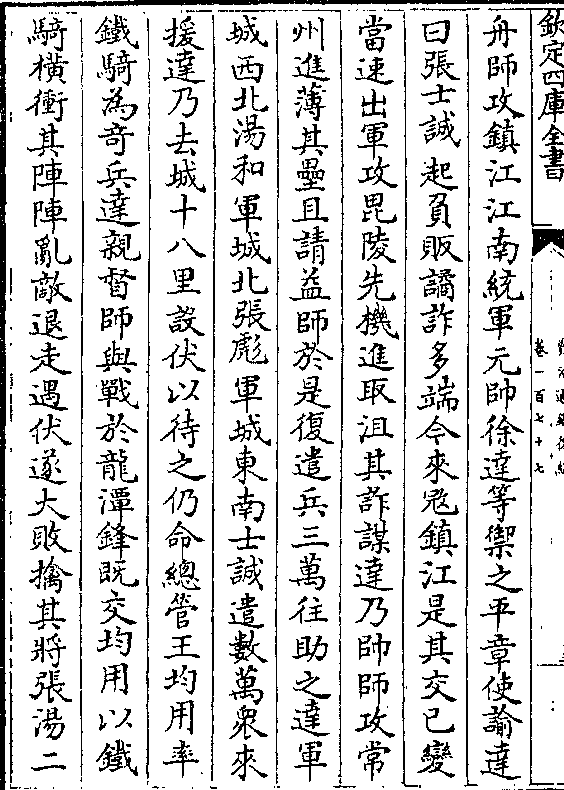 欽定四庫全書
卷一百七十七
舟師攻鎮江江南統軍元帥徐達等禦之平章使諭達
曰張士誠起負販譎詐多端今來宼鎮江是其交已變
當速出軍攻毘陵先機進取沮其詐謀達乃帥師攻常
州進薄其壘且請益師於是復遣兵三萬往助之達軍
城西北湯和軍城北張彪軍城東南士誠遣數萬衆來
援達乃去城十八里設伏以待之仍命總管王均用率
鐵騎為竒兵達親督師與戰於龍潭鋒既交均用以鐵
騎橫衝其陣陣亂敵退走遇伏遂大敗擒其將張湯二